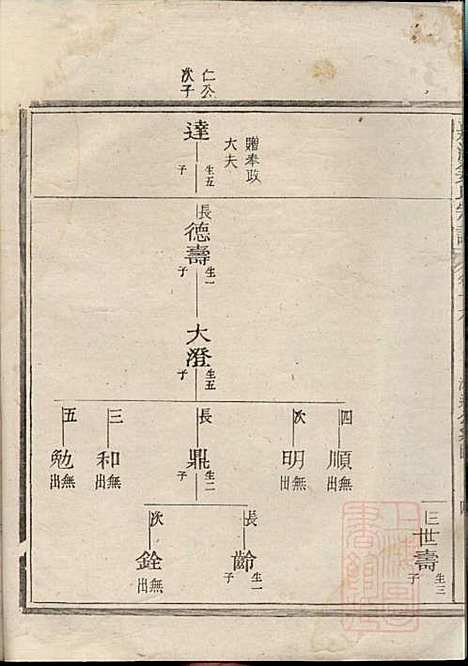 仁公
次子
贈奉政
大夫
達
生五
子
長
德壽
生一
子
大澄
生五
子
四
順
無
出
次
明
無
出
長
鼎
生二
子
三
和
無
出
五
勉
無
出
長
齡
生一
子
次
銓
無
出
三
世壽
生三
子